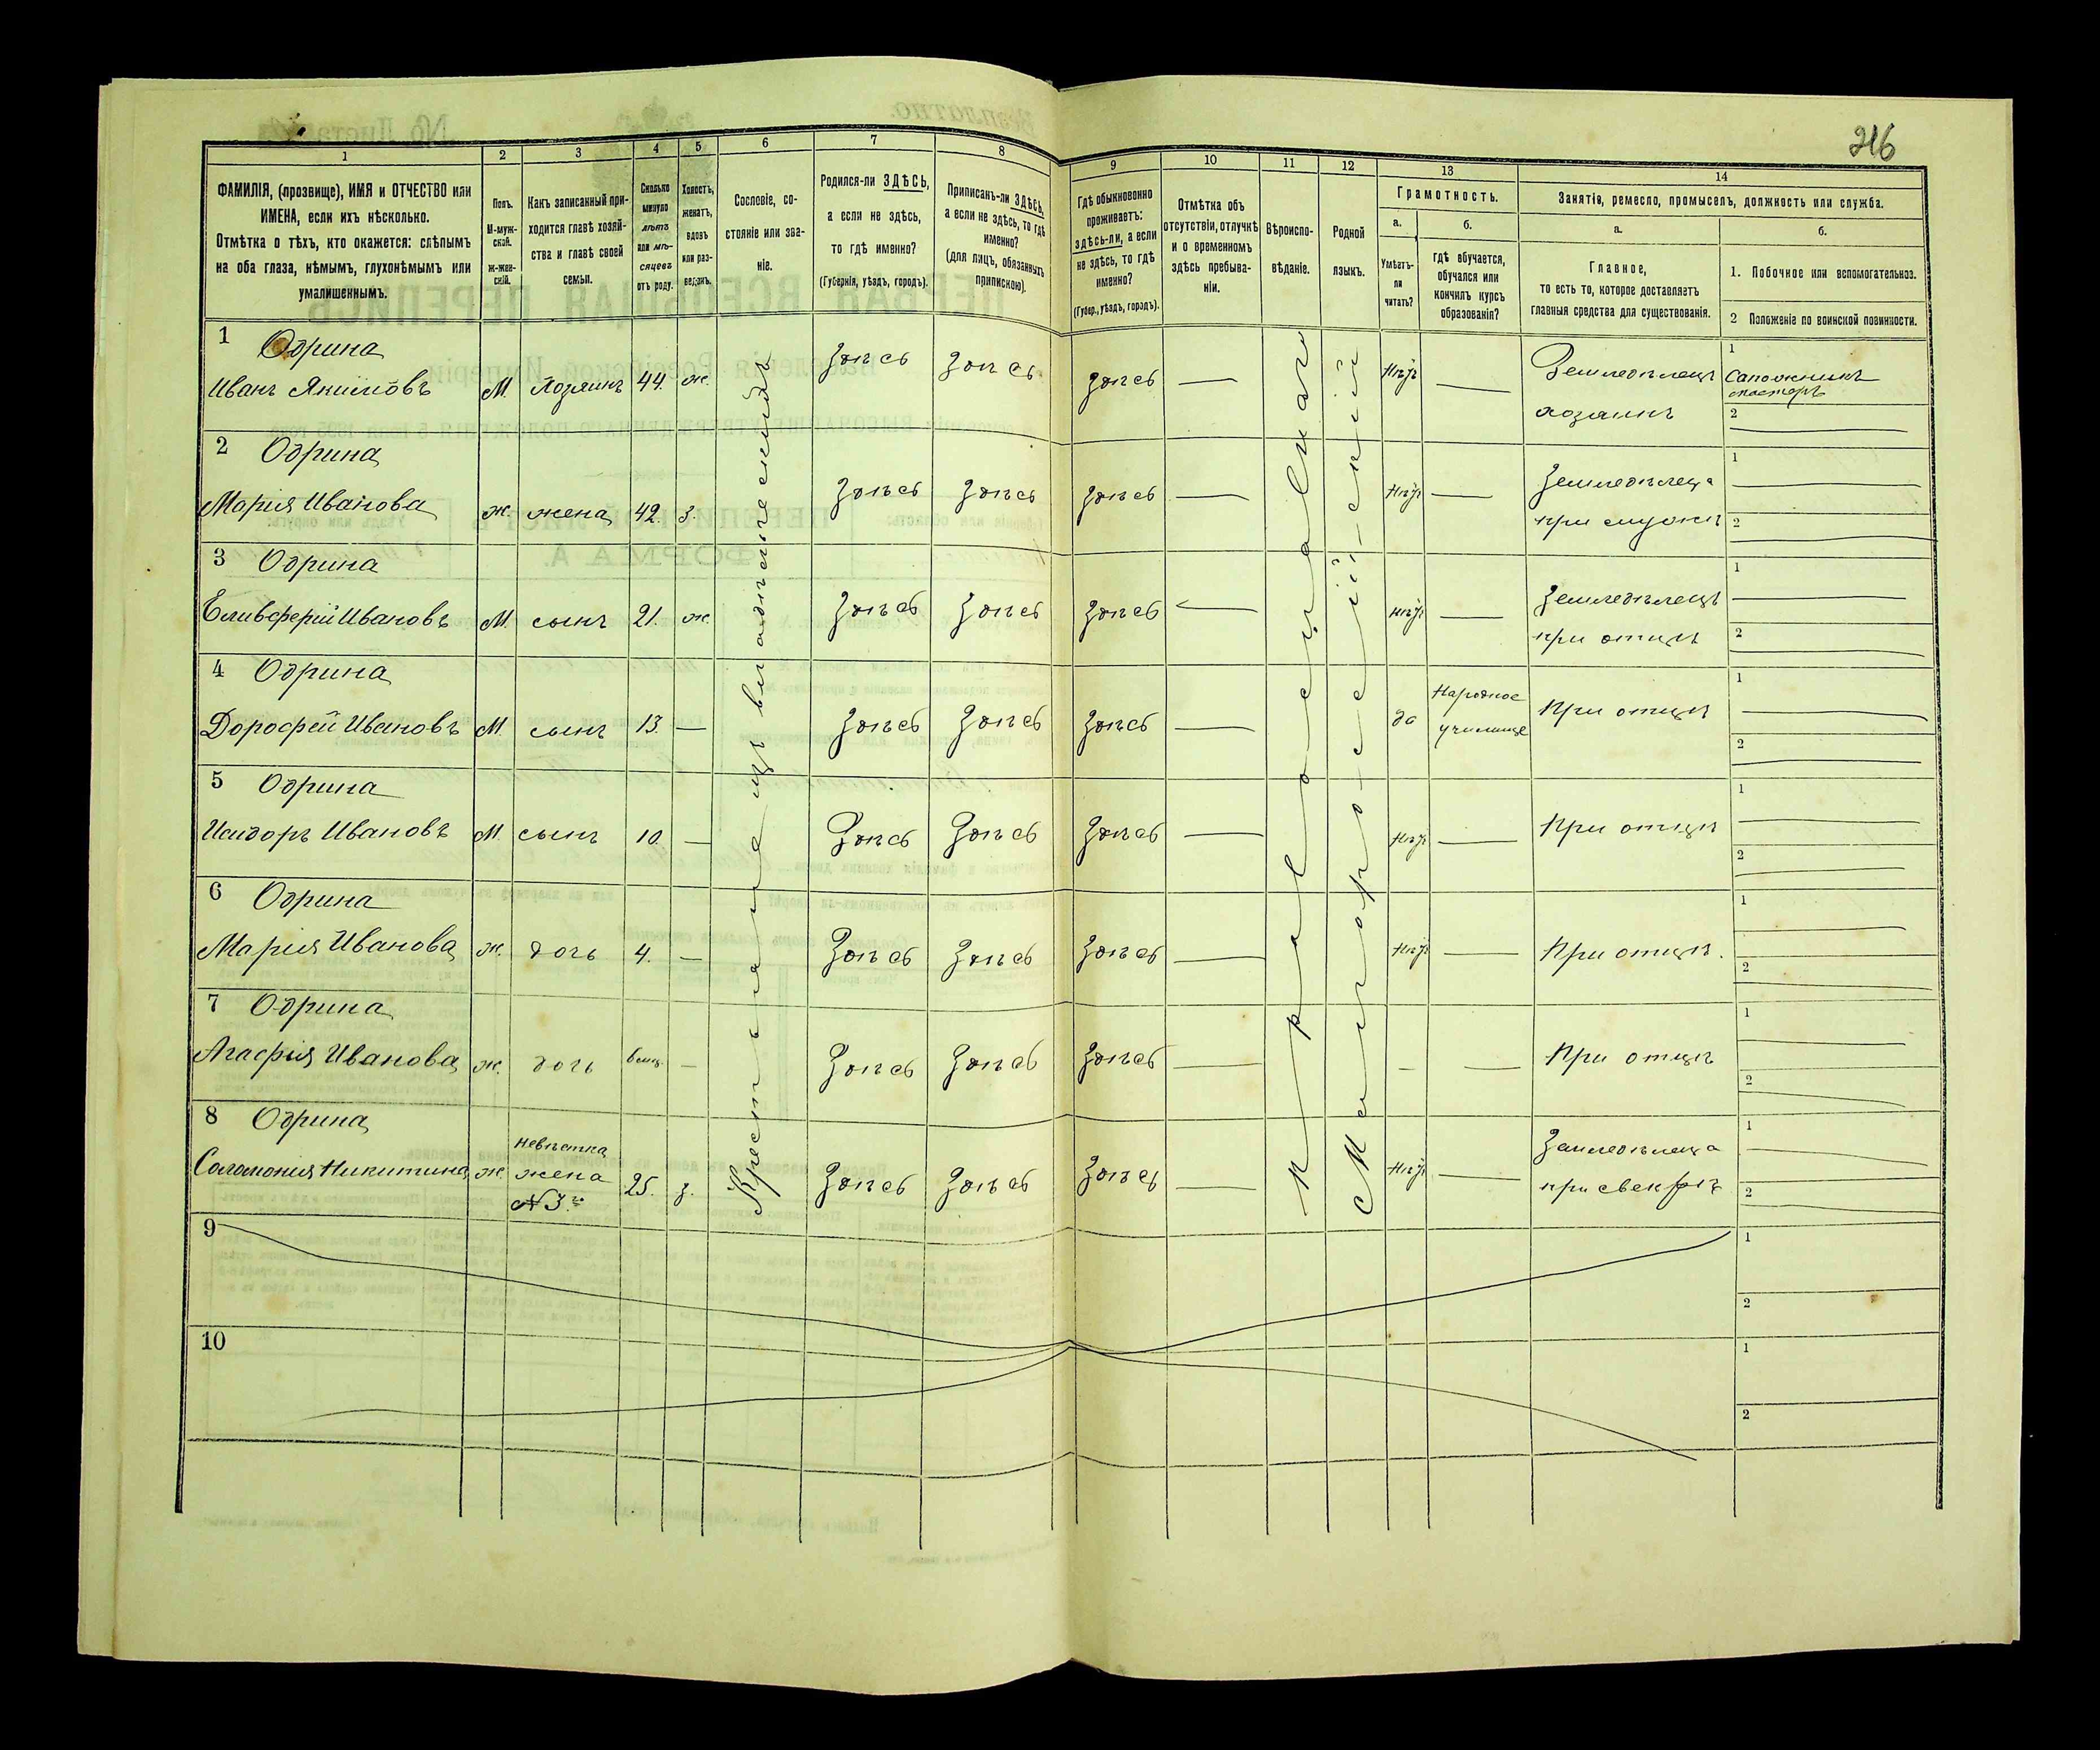 216
1 2 3 4 5 6 7 8 9 10 11 12 13 14
ФАМИЛІЯ, (прозвище), ИМЯ и ОТЧЕСТВО или
ИМЕНА, если ихъ нѣсколько.
Отмѣтка о тѣхъ, кто окажется: слѣпымъ
на оба глаза, нѣмымъ, глухонѣмымъ или
умалишеннымъ.
Полъ.
М-муж-
ской.
ж-жен-
скій.
Какъ записанный при-
ходится главѣ хозяй-
ства и главѣ своей
семьи.
Сколько
минуло
лѣтъ
или мѣ-
сяцевъ
отъ роду.
Холостъ,
женатъ,
вдовъ
или раз-
веденъ.
Сословіе, со-
стояніе или зва-
ніе.
Родился-ли ЗДѢСЬ,
а если не здѣсь,
то гдѣ именно?
(Губернія, уѣздъ, городъ).
Приписанъ-ли ЗДѢСЬ,
а если не здѣсь, то гдѣ
именно?
(для лицъ, обязанныхъ
припискою).
Гдѣ обыкновенно
проживаетъ:
здѣсь-ли, а если
не здѣсь, то гдѣ
именно?
(Губер., уѣздъ, городъ).
Отмѣтка объ
отсутствіи, отлучкѣ
и о временномъ
здѣсь пребыва-
ніи.
Вѣроиспо-
вѣданіе.
Родной
языкъ.
Грамотность.
а.
Умѣетъ-
ли
читать?
б.
гдѣ обучается,
обучался или
кончилъ курсъ
образованія?
Занятіе, ремесло, промыселъ, должность или служба.
а.
Главное,
то есть то, которое доставляетъ
главныя средства для существованія.
б.
1. Побочное или вспомогательное.
2 Положеніе по воинской повинности.
Крестьяне изъ владѣльческихъ
Православнаго
Малоросейскій
1 Одрина
Иванъ Якимовъ М. Хозяинъ 44. ж. Здѣсь Здѣсь Здѣсь — Нѣтъ — Земледѣлецъ
хозяинъ
1 Сапожникъ
мастеръ
2
2 Одрина
Марія Иванова ж. жена 42. з. Здѣсь Здѣсь Здѣсь — Нѣтъ — Земледѣлеца
при мужѣ
1
2
3 Одрина
Еливферій Ивановъ М. сынъ 21. ж. Здѣсь Здѣсь Здѣсь — Нѣтъ — Земледѣлецъ
при отцѣ
1
2
4 Одрина
Дорофей Ивановъ М. сынъ 13. — Здѣсь Здѣсь Здѣсь — да Народное
училище При отцѣ
1
2
5 Одрина
Исидоръ Ивановъ М. сынъ 10. — Здѣсь Здѣсь Здѣсь — Нѣтъ — При отцѣ
1
2
6 Одрина
Марія Иванова ж. дочь 4. — Здѣсь Здѣсь Здѣсь — Нѣтъ — При отцѣ.
1
2
7 Одрина
Агафія Иванова ж. дочь — Здѣсь Здѣсь Здѣсь — — — При отцѣ
1
2
8 Одрина
Соломонія Никитина ж. невѣстка
жена
№ 3го 25. з. Здѣсь Здѣсь Здѣсь — Нѣтъ — Земледѣлеца
при свекрѣ
1
2
9
1
2
10
1
2